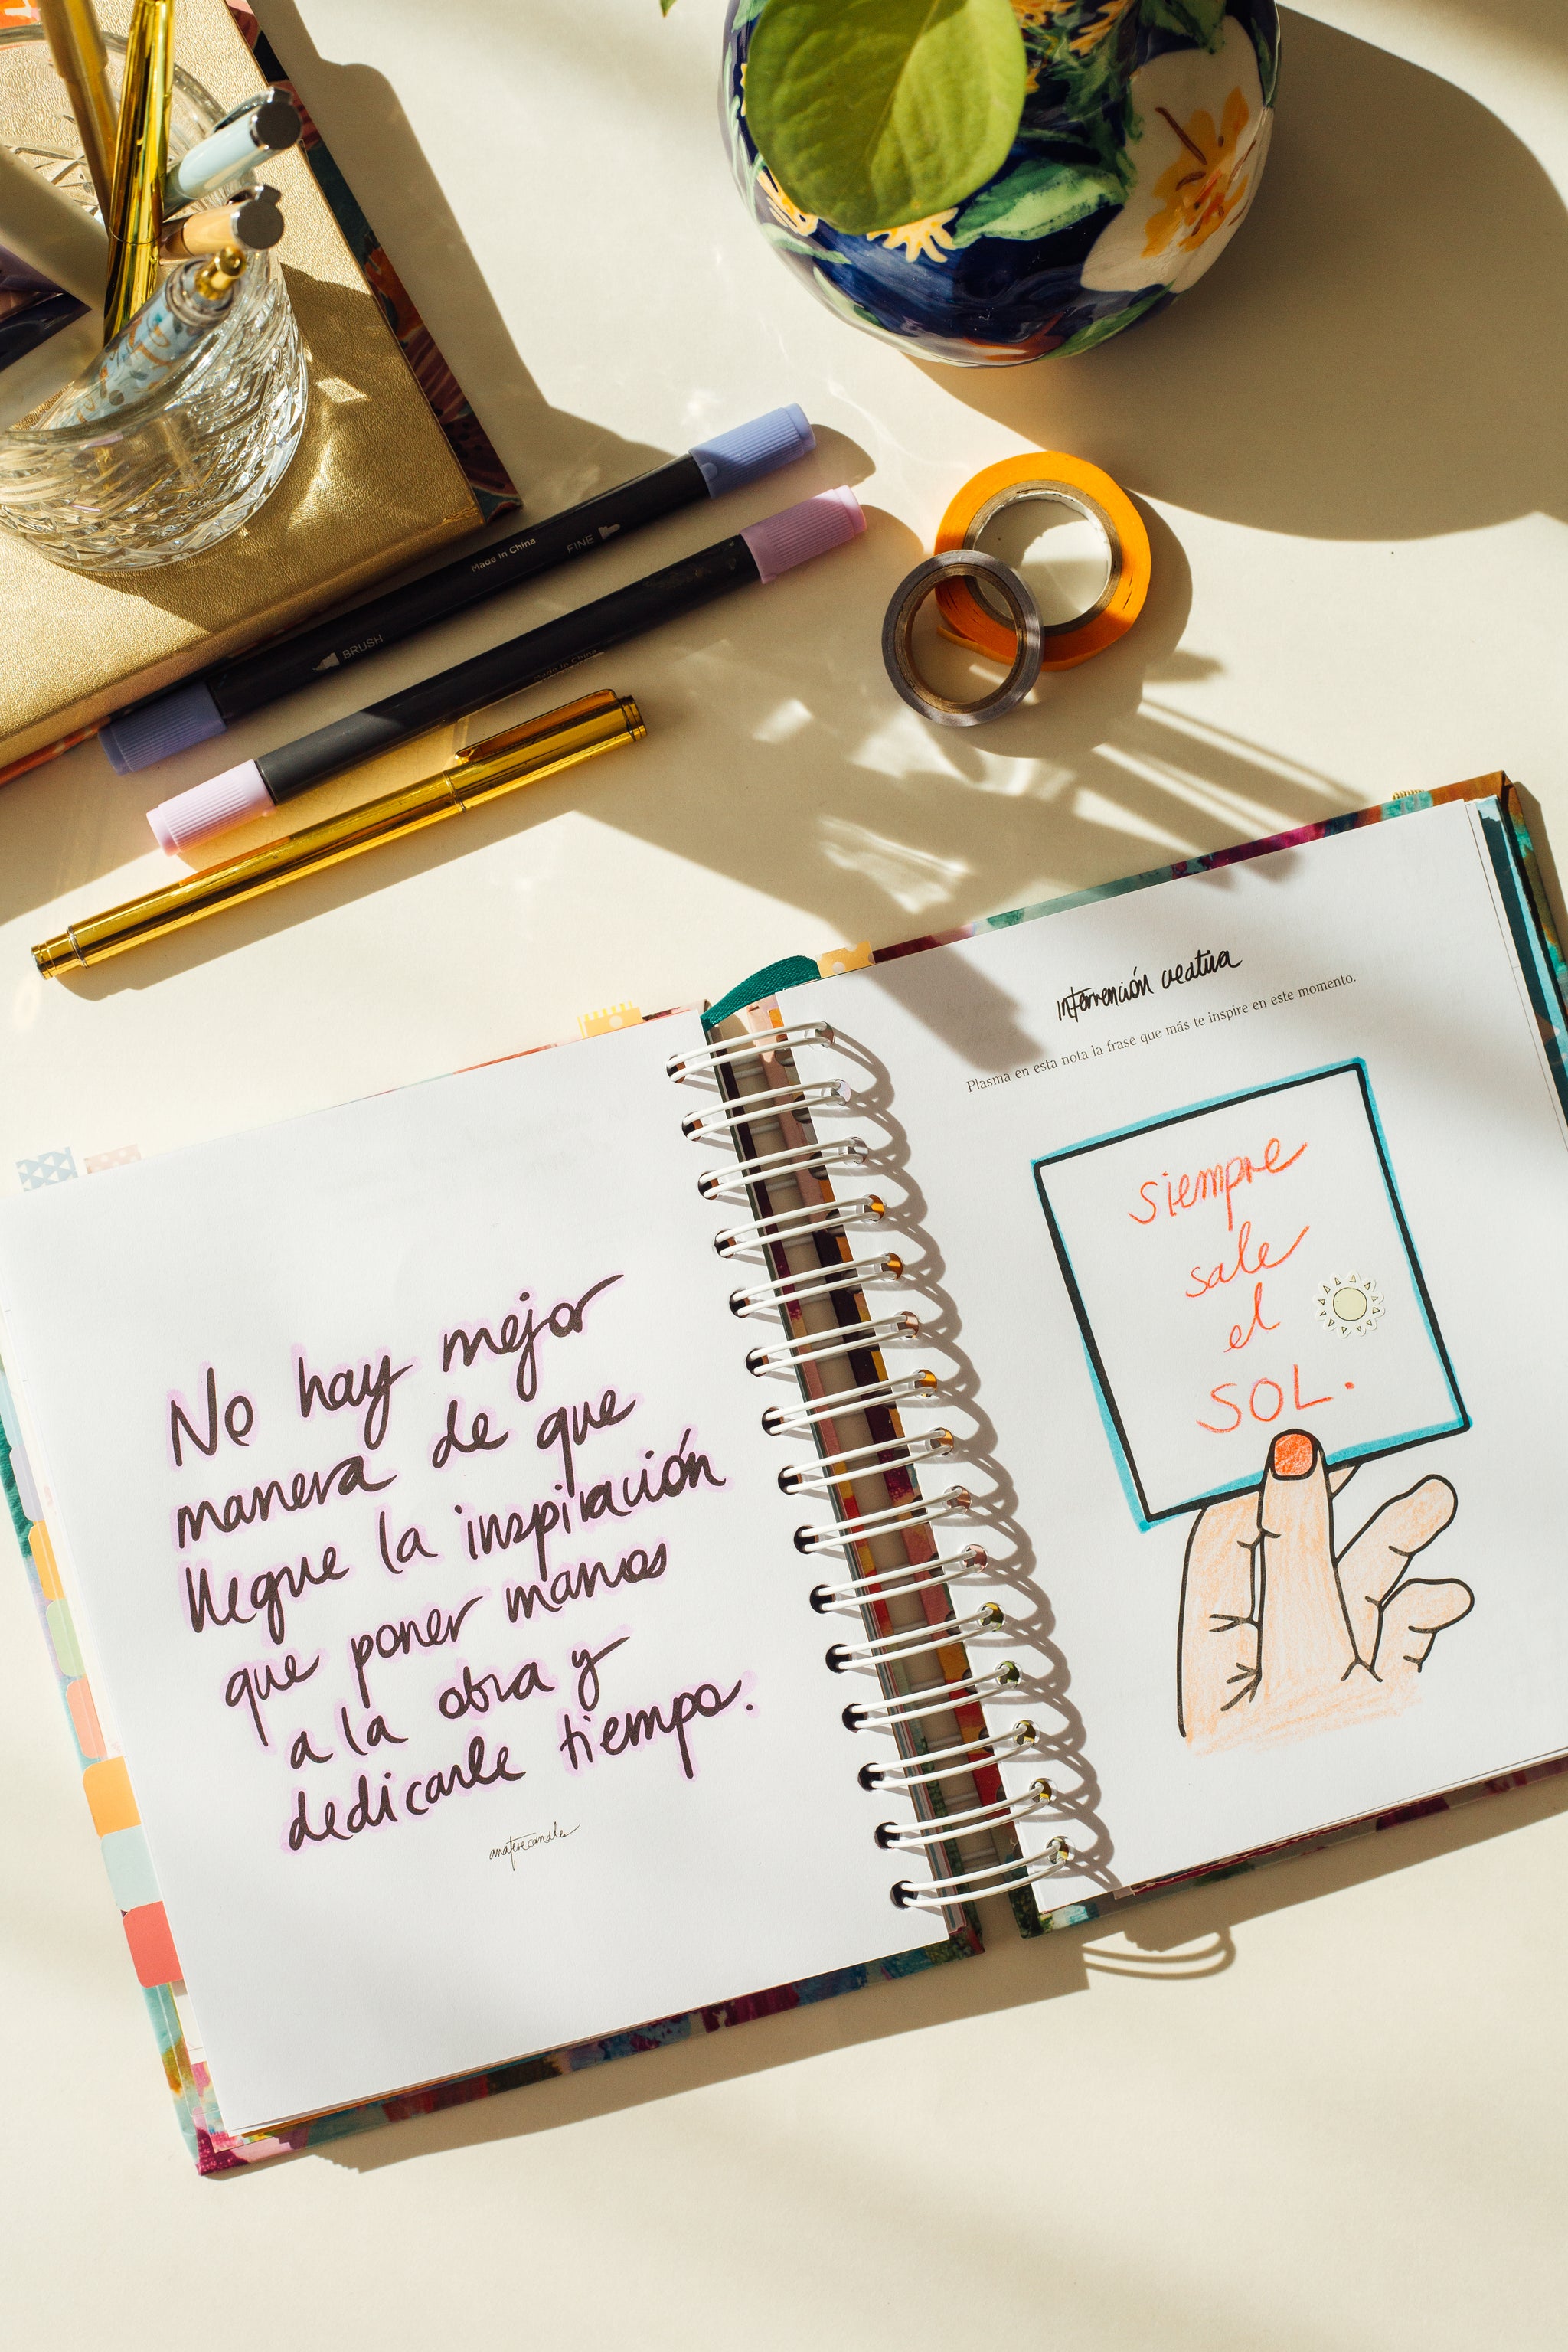 Made in China
FINE
BRUSH
Made in China
No hay mejor
manera de que
llegue la inspiración
que poner manos
a la obra y
dedicarle tiempo.
anaterecanales
intervención creativa
Plasma en esta nota la frase que más te inspire en este momento.
siempre
sale
el
SOL.